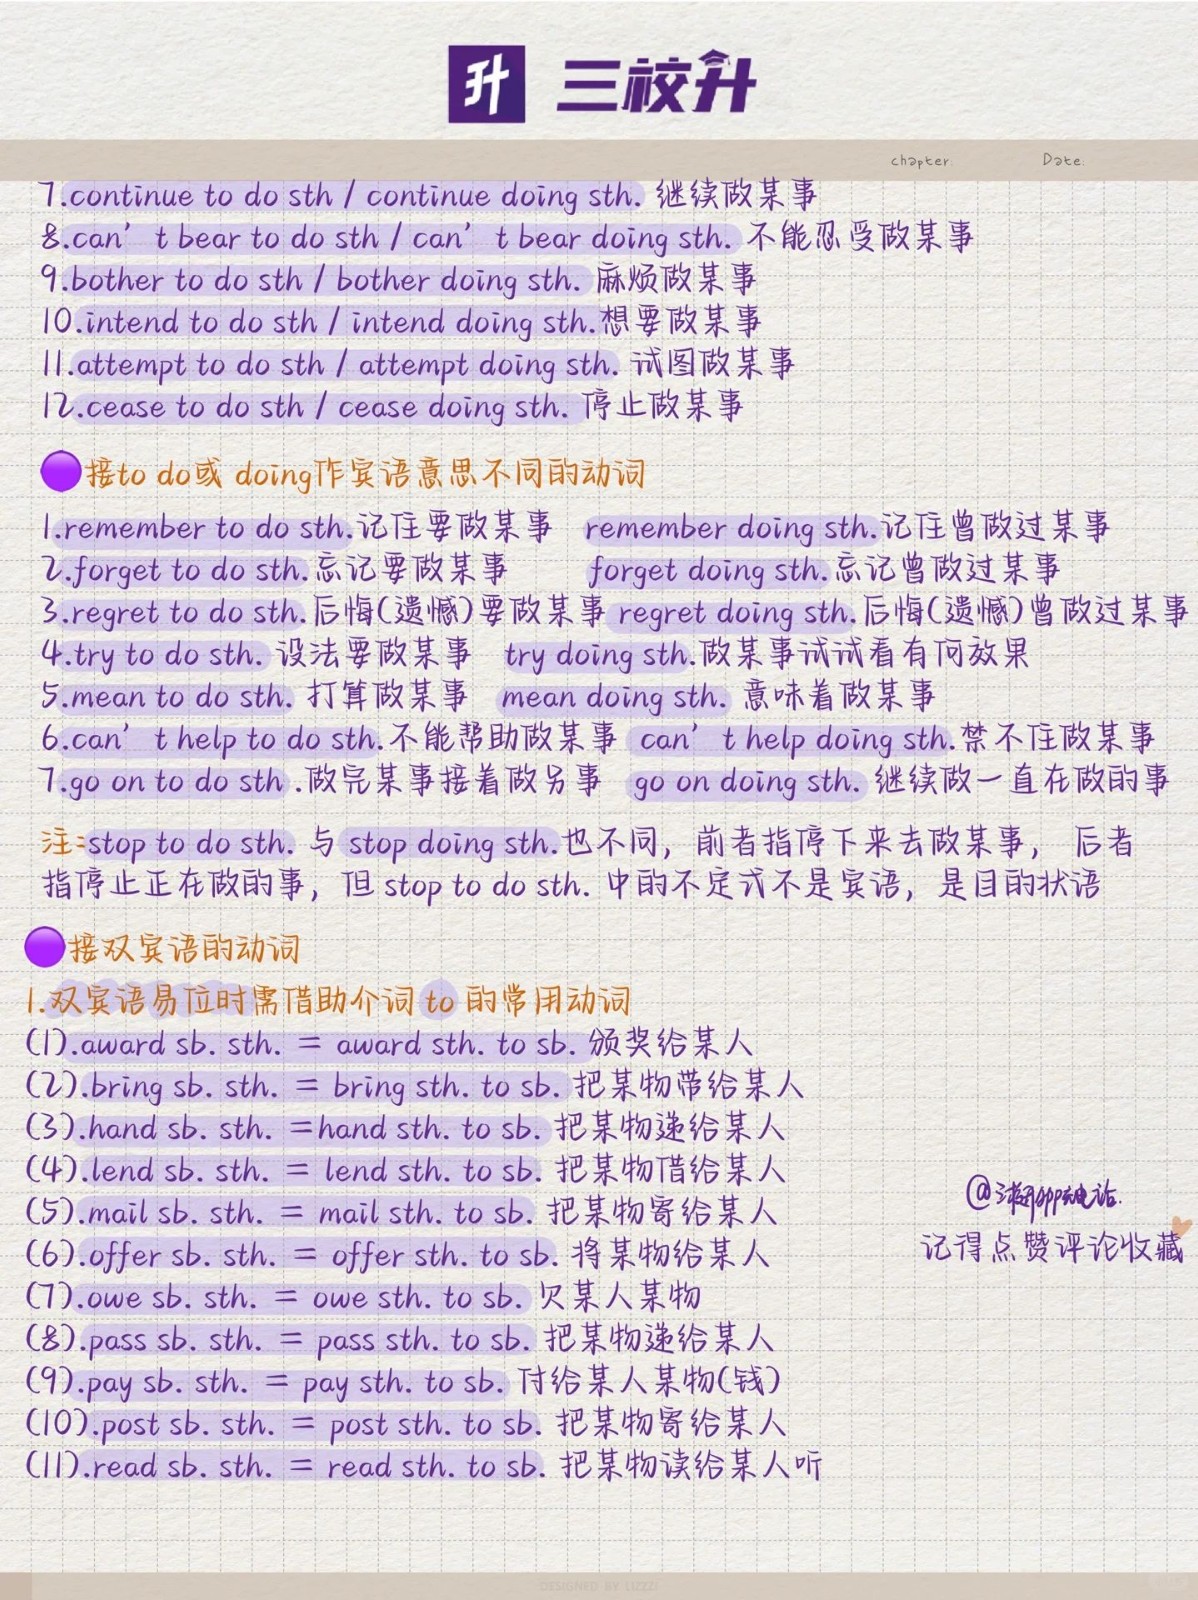 升 三校升
chapter: Date:
7.continue to do sth / continue doing sth. 继续做某事
8.can't bear to do sth / can't bear doing sth. 不能忍受做某事
9.bother to do sth / bother doing sth. 麻烦做某事
10.intend to do sth / intend doing sth.想要做某事
11.attempt to do sth / attempt doing sth. 试图做某事
12.cease to do sth / cease doing sth. 停止做某事
接to do或 doing作宾语意思不同的动词
1.remember to do sth.记住要做某事 remember doing sth.记住曾做过某事
2.forget to do sth.忘记要做某事 forget doing sth.忘记曾做过某事
3.regret to do sth.后悔(遗憾)要做某事 regret doing sth.后悔(遗憾)曾做过某事
4.try to do sth. 设法要做某事 try doing sth.做某事试试看有何效果
5.mean to do sth. 打算做某事 mean doing sth. 意味着做某事
6.can't help to do sth.不能帮助做某事 can't help doing sth.禁不住做某事
7.go on to do sth .做完某事接着做另事 go on doing sth. 继续做一直在做的事
注:stop to do sth. 与 stop doing sth.也不同，前者指停下来去做某事， 后者
指停止正在做的事，但 stop to do sth. 中的不定式不是宾语，是目的状语
接双宾语的动词
1.双宾语易位时需借助介词 to 的常用动词
(1).award sb. sth. = award sth. to sb. 颁奖给某人
(2).bring sb. sth. = bring sth. to sb. 把某物带给某人
(3).hand sb. sth. =hand sth. to sb. 把某物递给某人
(4).lend sb. sth. = lend sth. to sb. 把某物借给某人
(5).mail sb. sth. = mail sth. to sb. 把某物寄给某人
(6).offer sb. sth. = offer sth. to sb. 将某物给某人
(7).owe sb. sth. = owe sth. to sb. 欠某人某物
(8).pass sb. sth. = pass sth. to sb. 把某物递给某人
(9).pay sb. sth. = pay sth. to sb. 付给某人某物(钱)
(10).post sb. sth. = post sth. to sb. 把某物寄给某人
(11).read sb. sth. = read sth. to sb. 把某物读给某人听
记得点赞评论收藏
DESIGNED BY LIZZZI